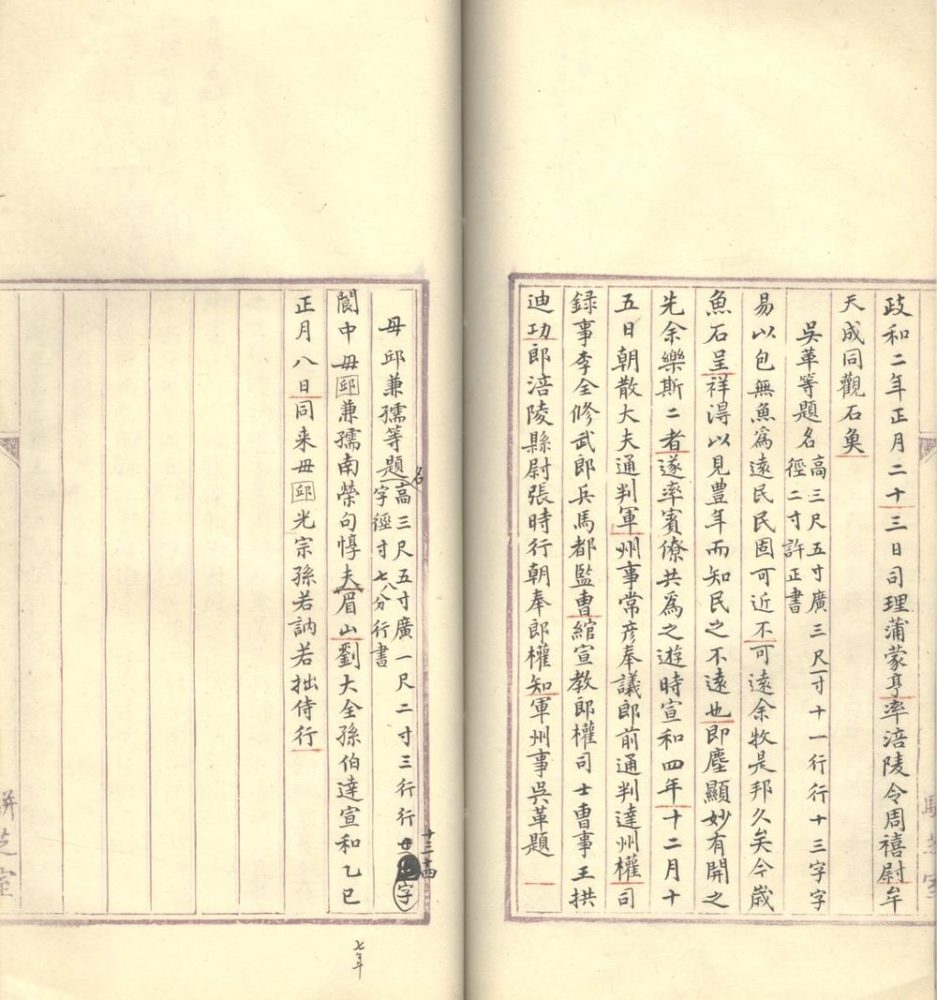 政和二年正月二十三日司理蒲蒙亨率涪陵令周禧尉牟
天成同觀石魚
吳革等題名高三尺五寸廣三尺一寸十一行行十三字字
徑二寸許正書
易以包無魚爲遠民民固可近不可遠余牧是邦久矣今歲
魚石呈祥淂以見豊年而知民之不遠也即塵顯妙有開之
先余樂斯二者遂率賓僚共爲之遊時宣和四年十二月十
五日朝散大夫通判軍州事常彦奉議郎前通判達州權司
録事李全修武郎兵馬都監曹綰宣教郎權司士曹事王拱
迪功郎涪陵縣尉張時行朝奉郎權知軍州事吳革題
毋邱兼孺等題名高三尺五寸廣一尺二寸三行行字
十三
字徑寸七八分行書
閬中毋邱兼孺南榮句惇夫眉山劉大全孫伯達宣和乙巳
正月八日同来毋邱光宗孫若訥若拙侍行
七年